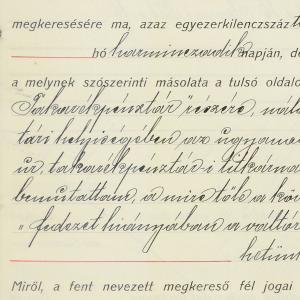 megkeresésére ma, azaz egyezerkilenczszáz
hó harminczadik napján, de
a melynek szószerinti másolata a tulsó oldalo
Takarékpénztár" részére, nála
tári helyiségében az ugyanott
ur, takarékpénztári titkárna
bemutattam, a mire tőle a köv
„ fedezet hiányában a váltó
hetün
Miről, a fent nevezett megkereső fél jogai